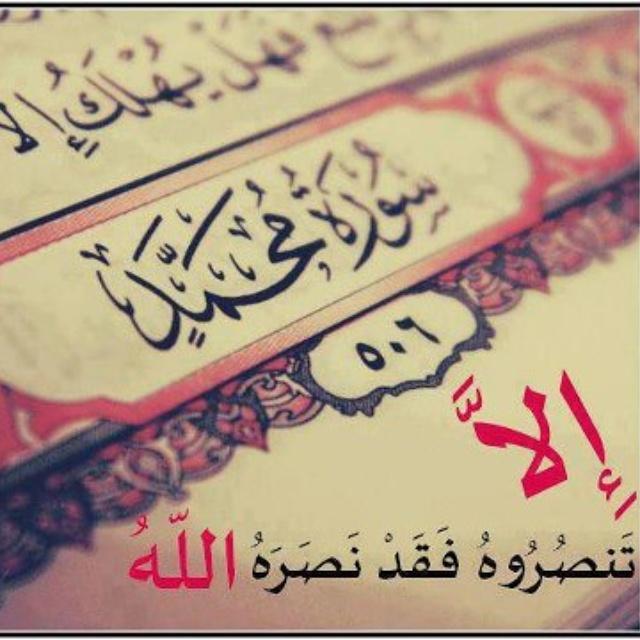 فَهَلْ يُهْلَكُ إِلَّا
سُورَةُ مُحَمَّدٍ
٥٠٦
إِلاَّ
تَنصُرُوهُ فَقَدْ نَصَرَهُ اللّهُ